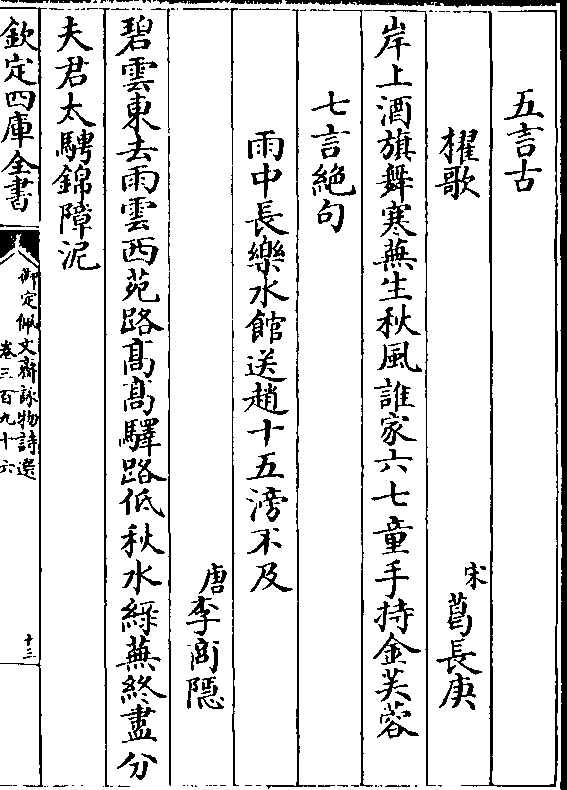 五言古
櫂歌
宋葛長庚
岸上酒旗舞寒蕪生秋風誰家六七童手持金芙蓉
七言絕句
雨中長樂水館送趙十五滂不及
唐李商隱
碧雲東去雨雲西苑路高高驛路低秋水綠蕪終盡分
夫君太騁錦障泥
欽定四庫全書
御定佩文齋詠物詩選
卷三百九十六
十三